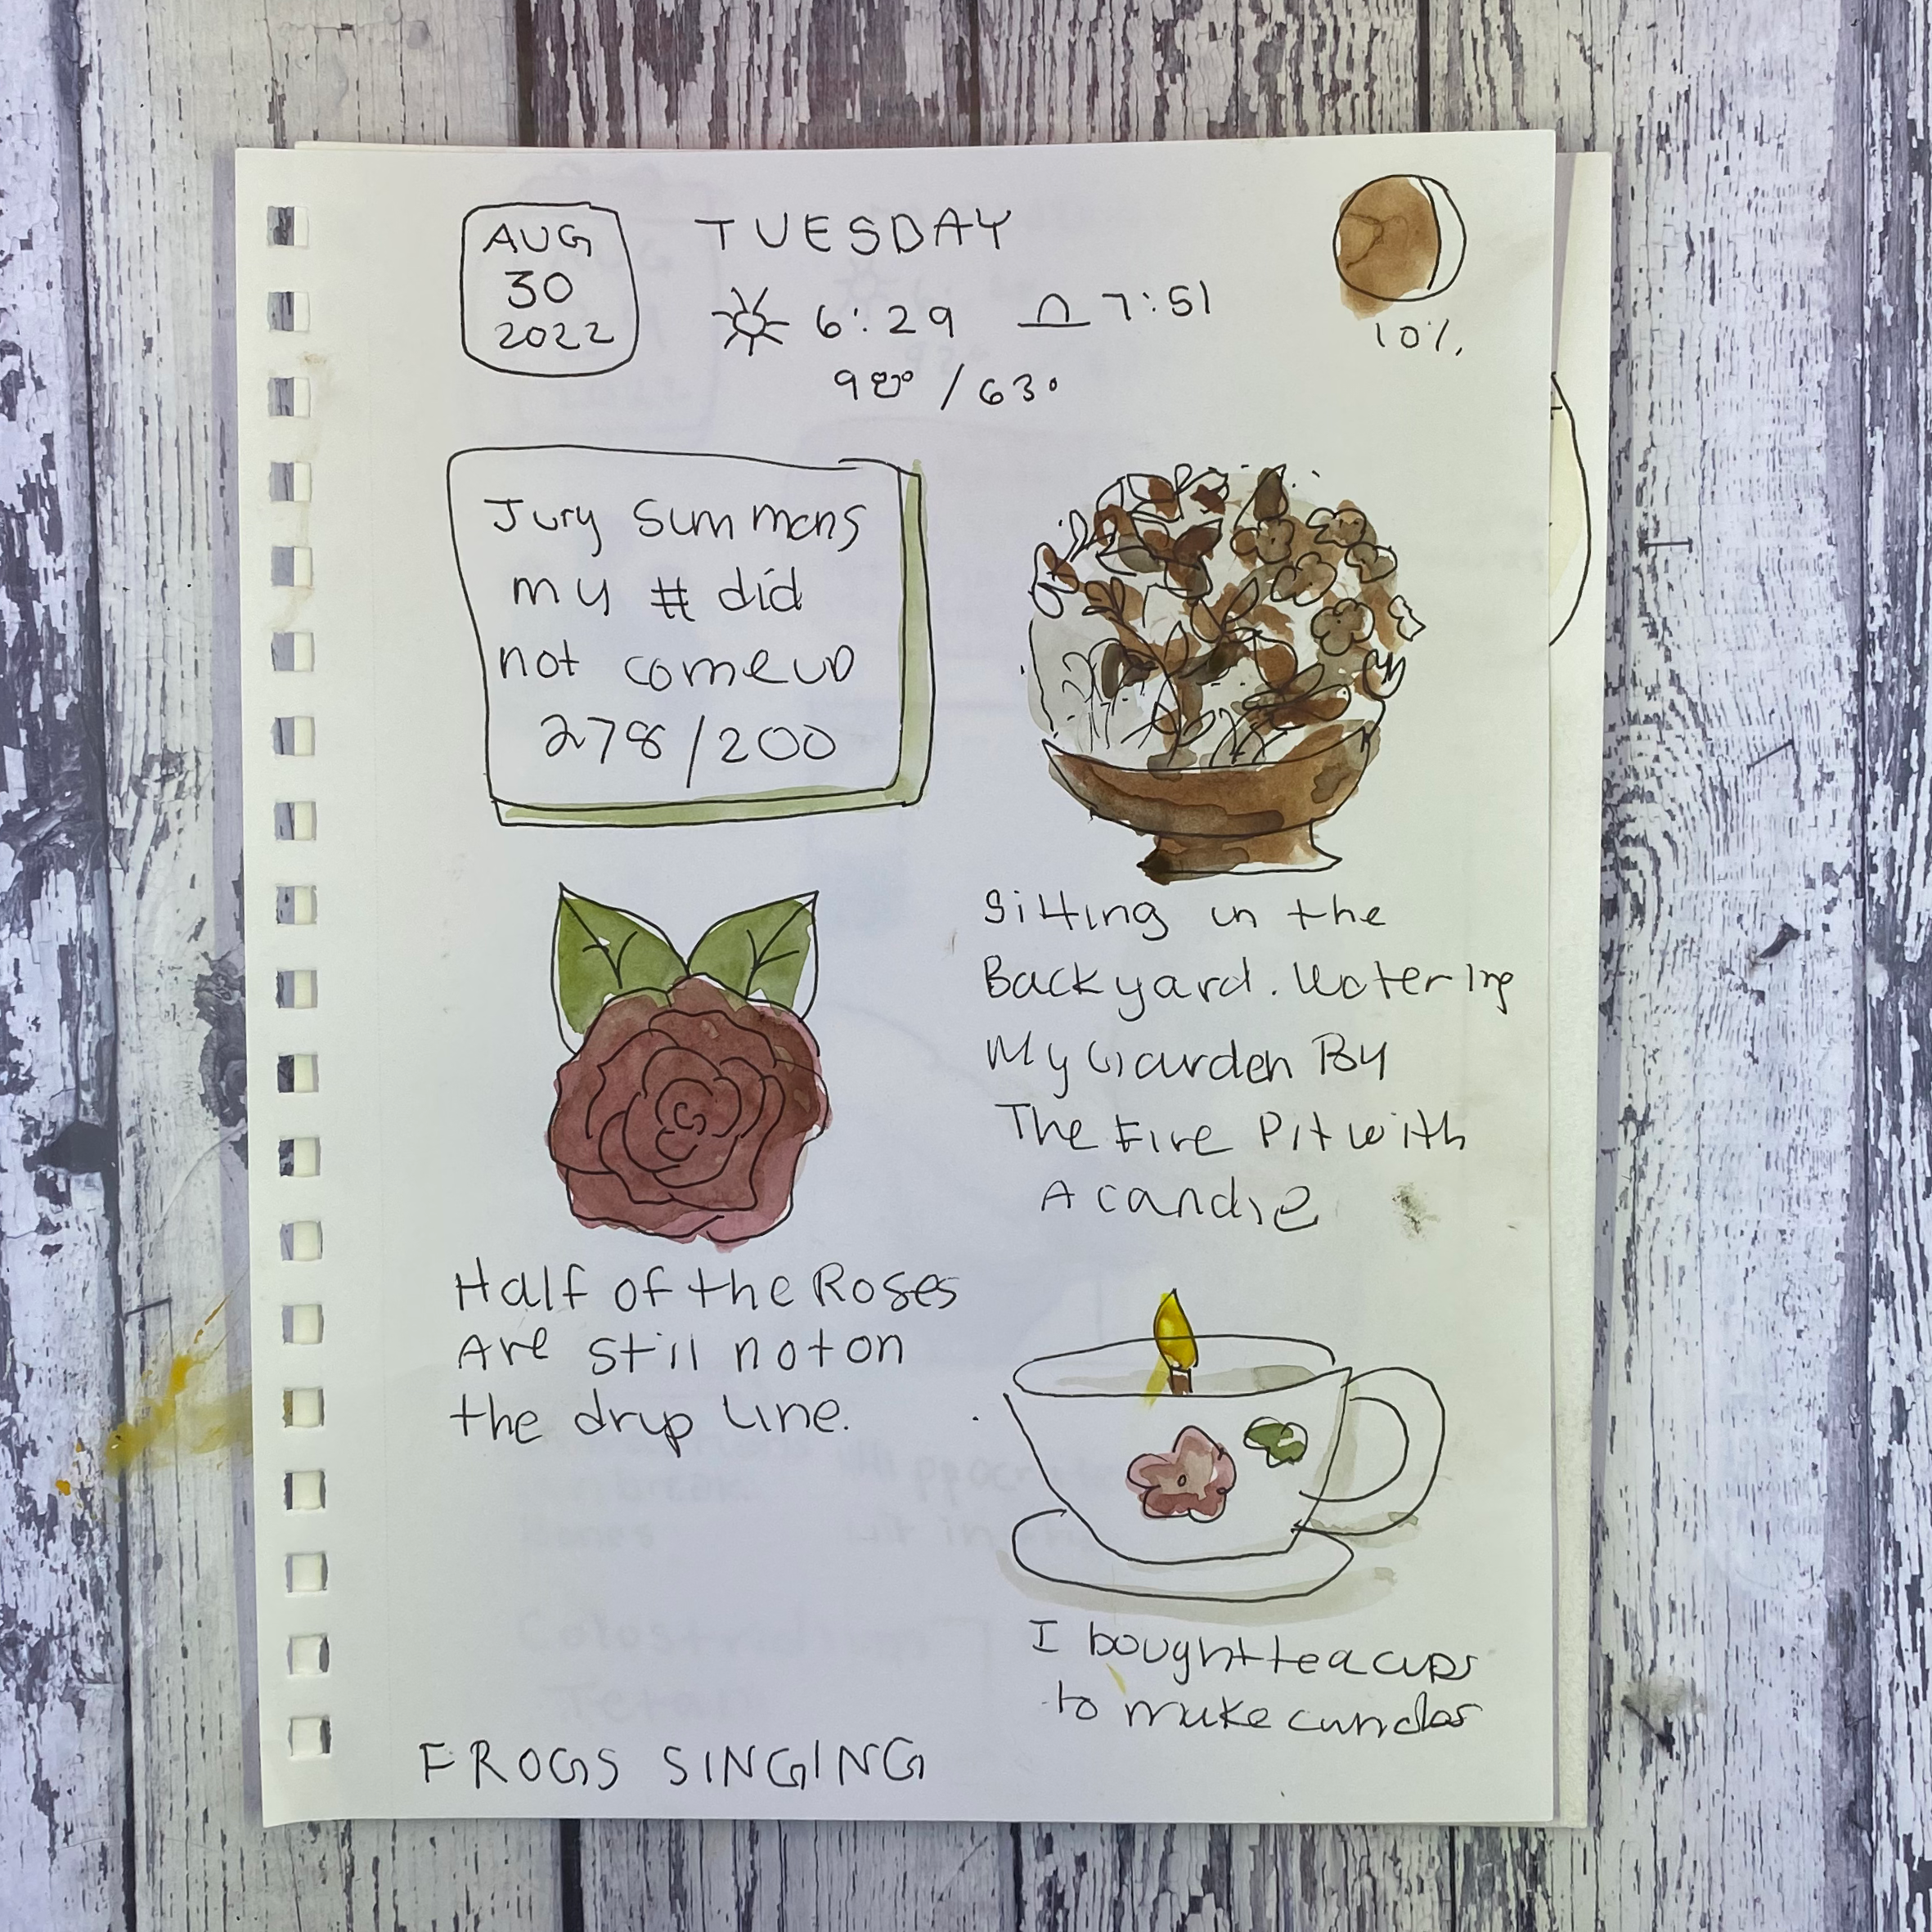 AUG
30
2022
TUESDAY
6:29 7:51
98° / 63°
10%
Jury Summons
my # did
not come up
278/200
Sitting in the
Backyard. Watering
My Garden By
The Fire Pit with
A candle
Half of the Roses
Are still not on
the drip Line.
I bought tea cups
to make candles
FROGS SINGING